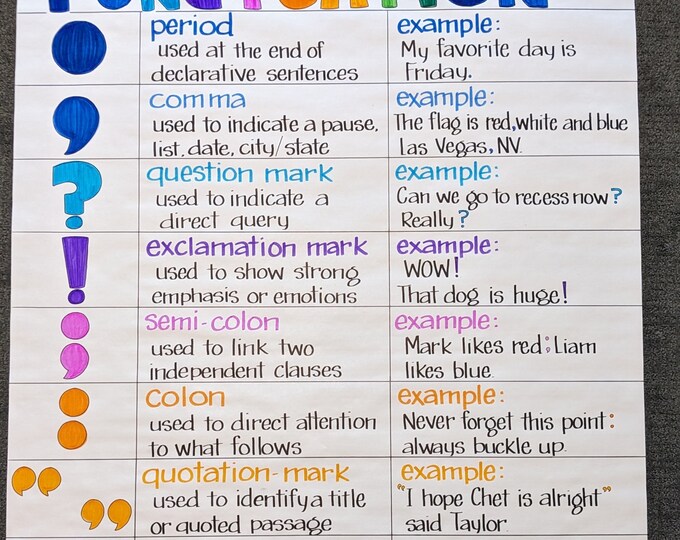 PUNCTUATION
period
used at the end of
declarative sentences
example:
My favorite day is
Friday.
comma
used to indicate a pause,
list, date, city/state
example:
The flag is red, white and blue
Las Vegas, NV.
question mark
used to indicate a
direct query
example:
Can we go to recess now?
Really?
exclamation mark
used to show strong
emphasis or emotions
example:
WOW!
That dog is huge!
semi-colon
used to link two
independent clauses
example:
Mark likes red; Liam
likes blue.
colon
used to direct attention
to what follows
example:
Never forget this point:
always buckle up.
quotation-mark
used to identify a title
or quoted passage
example:
"I hope Chet is alright"
said Taylor.